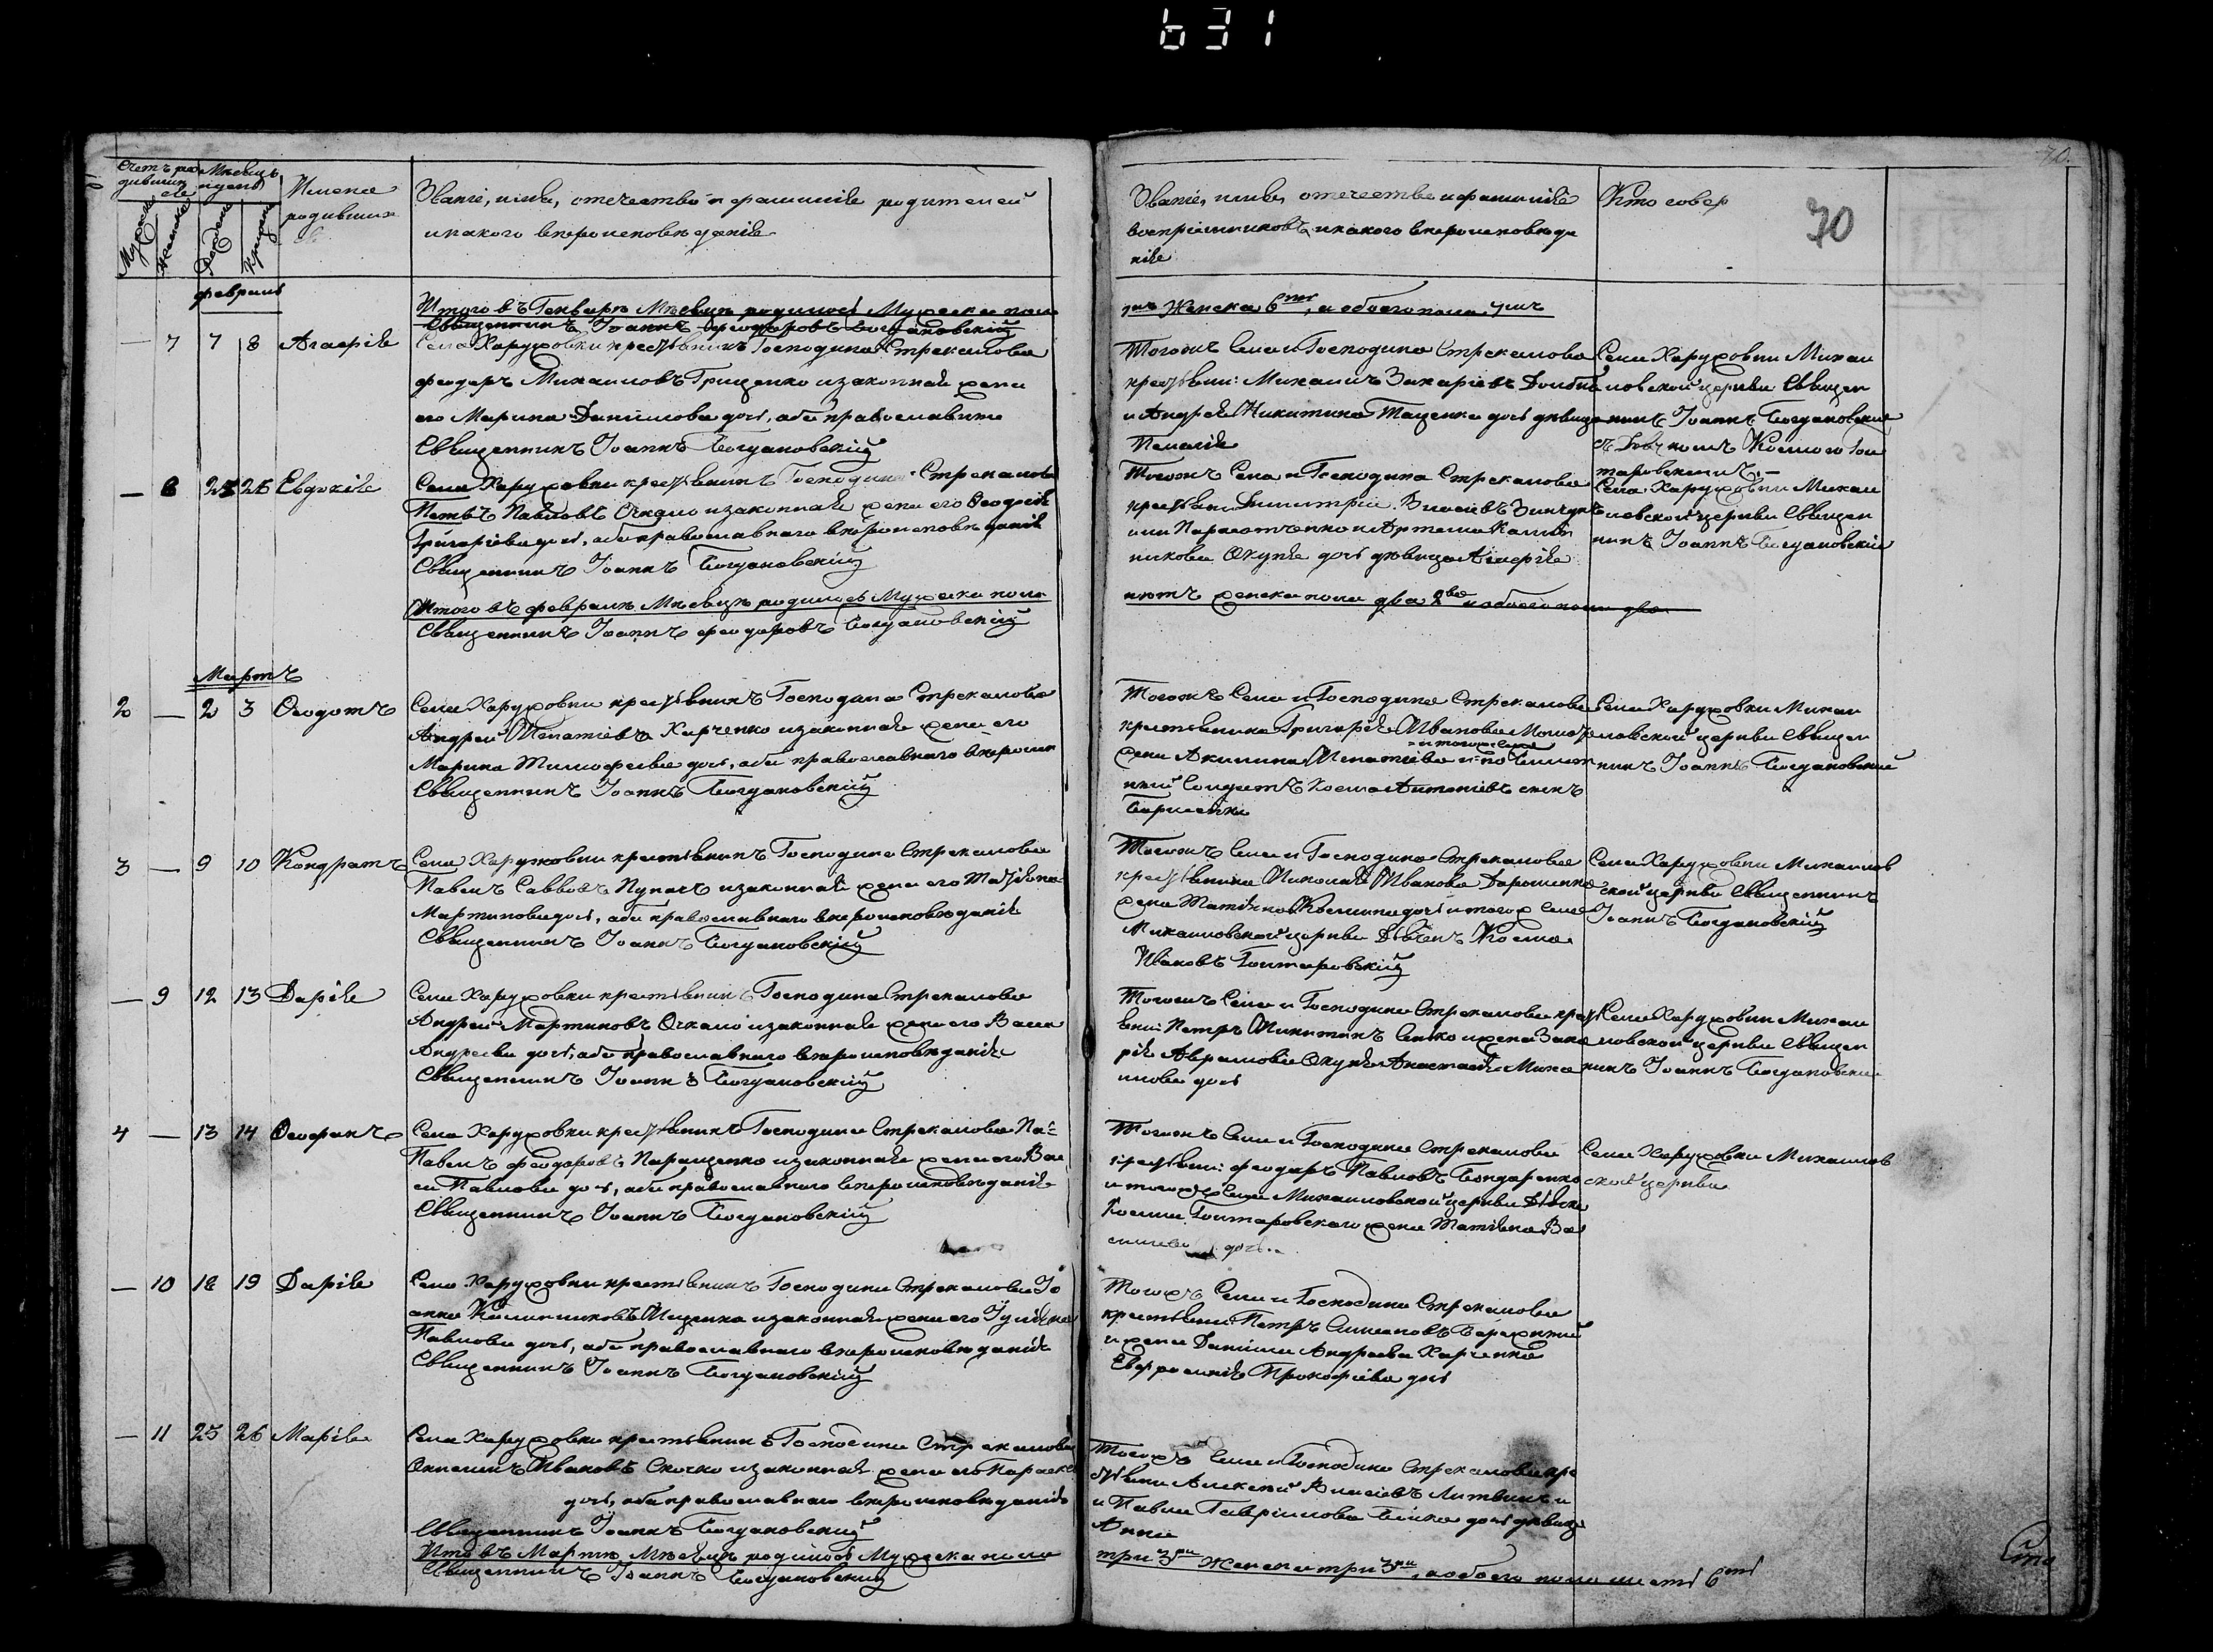 631
70.
70
Счетъ ро
дивших
ся
Мѣсяцъ
и день
Имена
родивших
ся
Мужеска
Женска
Рожденія
Крещенія
Званіе, имя, отечество и фамилія родителей
и какого вѣроисповѣданія
Званіе, имя, отечество и фамилія
воспріемниковъ и какого вѣроисповѣда
нія
Кто совер
февраль
Итого въ Генварѣ Мѣсяцѣ родилось Мужеска пола
Священникъ Іоаннъ Феодоровъ Богдановскій
Женска 6, а обоего пола 7
— 7 7 8 Агафія
Села Харужовки крестьянинъ Господина Стрекалова
Феодоръ Михаиловъ Грищенко и законная жена
его Марина Даніилова дочь, оба православнаго
Священникъ Іоаннъ Богдановскій
Тогожъ Села и Господина Стрекалова
крестьян: Михаилъ Захаріевъ
и Андрея Никитина Таценка дочь дѣвица
Пелагія
Села Харужовки Михаи
ловской церкви Священ
никъ Іоаннъ Богдановскій
съ Дьячкомъ Космою Гон
таровскимъ.—
— 8 25 26 Евдокія
Села Харужовки крестьянинъ Господина Стрекалова
Петръ Павловъ Очкало и законная жена его Феодосія
Григоріева дочь, оба православнаго вѣроисповѣданія
Священникъ Іоаннъ Богдановскій
Тогожъ Села и Господина Стрекалова
крестьян: Димитрій Власіевъ
и Артема Калин
никова Окуня дочь дѣвица Агафія
Села Харужовки Михаи
ловской церкви Священ
никъ Іоаннъ Богдановскій
Итого въ февралѣ Мѣсяцѣ родилось Мужеска пола
Священникъ Іоаннъ Феодоровъ Богдановскій
нѣтъ женска пола два 2 и обоего пола два
Мартъ
2 — 2 3 Феодотъ
Села Харужовки крестьянинъ Господина Стрекалова
Андрей Игнатіевъ Харченко и законная жена его
Марина Тимофеева дочь, оба православнаго вѣроисп
Священникъ Іоаннъ Богдановскій
Тогожъ Села и Господина Стрекалова
крестьянина Григорія Иванова
жена Акилина Игнатіева и
Солдатъ Косма Антоніевъ сынъ
Села Харужовки Михаи
ловской церкви Священ
никъ Іоаннъ Богдановскій
3 — 9 10 Кондратъ
Села Харужовки крестьянинъ Господина Стрекалова
Павелъ Саввовъ Пугачъ и законная жена его Татіяна
Мартинова дочь, оба православнаго вѣроисповѣданія
Священникъ Іоаннъ Богдановскій
Тогожъ Села и Господина Стрекалова
крестьянина Николая Иванова Дорошенка
жена Татіяна Космина дочь и того ж Села
Михаиловской церкви Дьячекъ Косма
Ивановъ Гонтаровскій
Села Харужовки Михаилов
ской церкви Священникъ
Іоаннъ Богдановскій
— 9 12 13 Дарія
Села Харужовки крестьянинъ Господина Стрекалова
Андрей Мартиновъ Очкало и законная жена его Васса
Андреева дочь, оба православнаго вѣроисповѣданія
Священникъ Іоаннъ Богдановскій
Тогожъ Села и Господина Стрекалова крест
Петръ Никитинъ и жена Заха
рія Аврамова Окуня Анастасія Миха
илова дочь
Села Харужовки Михаи
ловской церкви Священ
никъ Іоаннъ Богдановскій
4 — 13 14 Феофанъ
Села Харужовки крестьянинъ Господина Стрекалова Па=
Павелъ Феодоровъ Паращенко и законная жена его Ва
са Павлова дочь, оба православнаго вѣроисповѣданія
Священникъ Іоаннъ Богдановскій
Тогожъ Села и Господина Стрекалова
крестьян: Феодоръ Павловъ Бондаренко
и тогож Села Михаиловской церкви Дьячка
Космы Гонтаровскаго жена Татіяна Ва
силиева дочь.
Села Харужовки Михаилов
ской церкви
— 10 18 19 Дарія
Села Харужовки крестьянинъ Господина Стрекалова Іо
аннъ Калинниковъ Ищенко и законная жена его Іуліяна
Павлова дочь, оба православнаго вѣроисповѣданія
Священникъ Іоаннъ Богдановскій
Тогожъ Села и Господина Стрекалова
крестьянин Петръ Симеоновъ Бережный
и жена Даніила Андреева Харченка
Евфросинія Прокофіева дочь
— 11 25 26 Марія
Села Харужовки крестьянинъ Господина Стрекалова
Ивановъ и законная жена его Параске
дочь, оба православнаго вѣроисповѣданія
Священникъ Іоаннъ Богдановскій
Тогожъ Села и Господина Стрекалова кре
стьянин Алексей Власіевъ Литвинъ и
и Павла Гавріилова дочь дѣвица
Анна
Итого въ Мартѣ Мѣсяцѣ родилось Мужеска пола
Священникъ Іоаннъ Богдановскій
три 3 Женска три 3, а обоего пола шесть 6